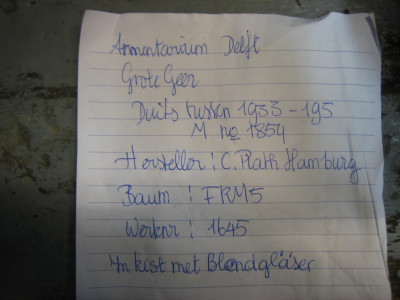 Armentarium Delft
Grote Geer
Duits tussen 1933 - 195
M no 1854
Hersteller : C. Plath Hamburg
Baum : FRM5
Werknr : 1645
In kist met Blendgläser